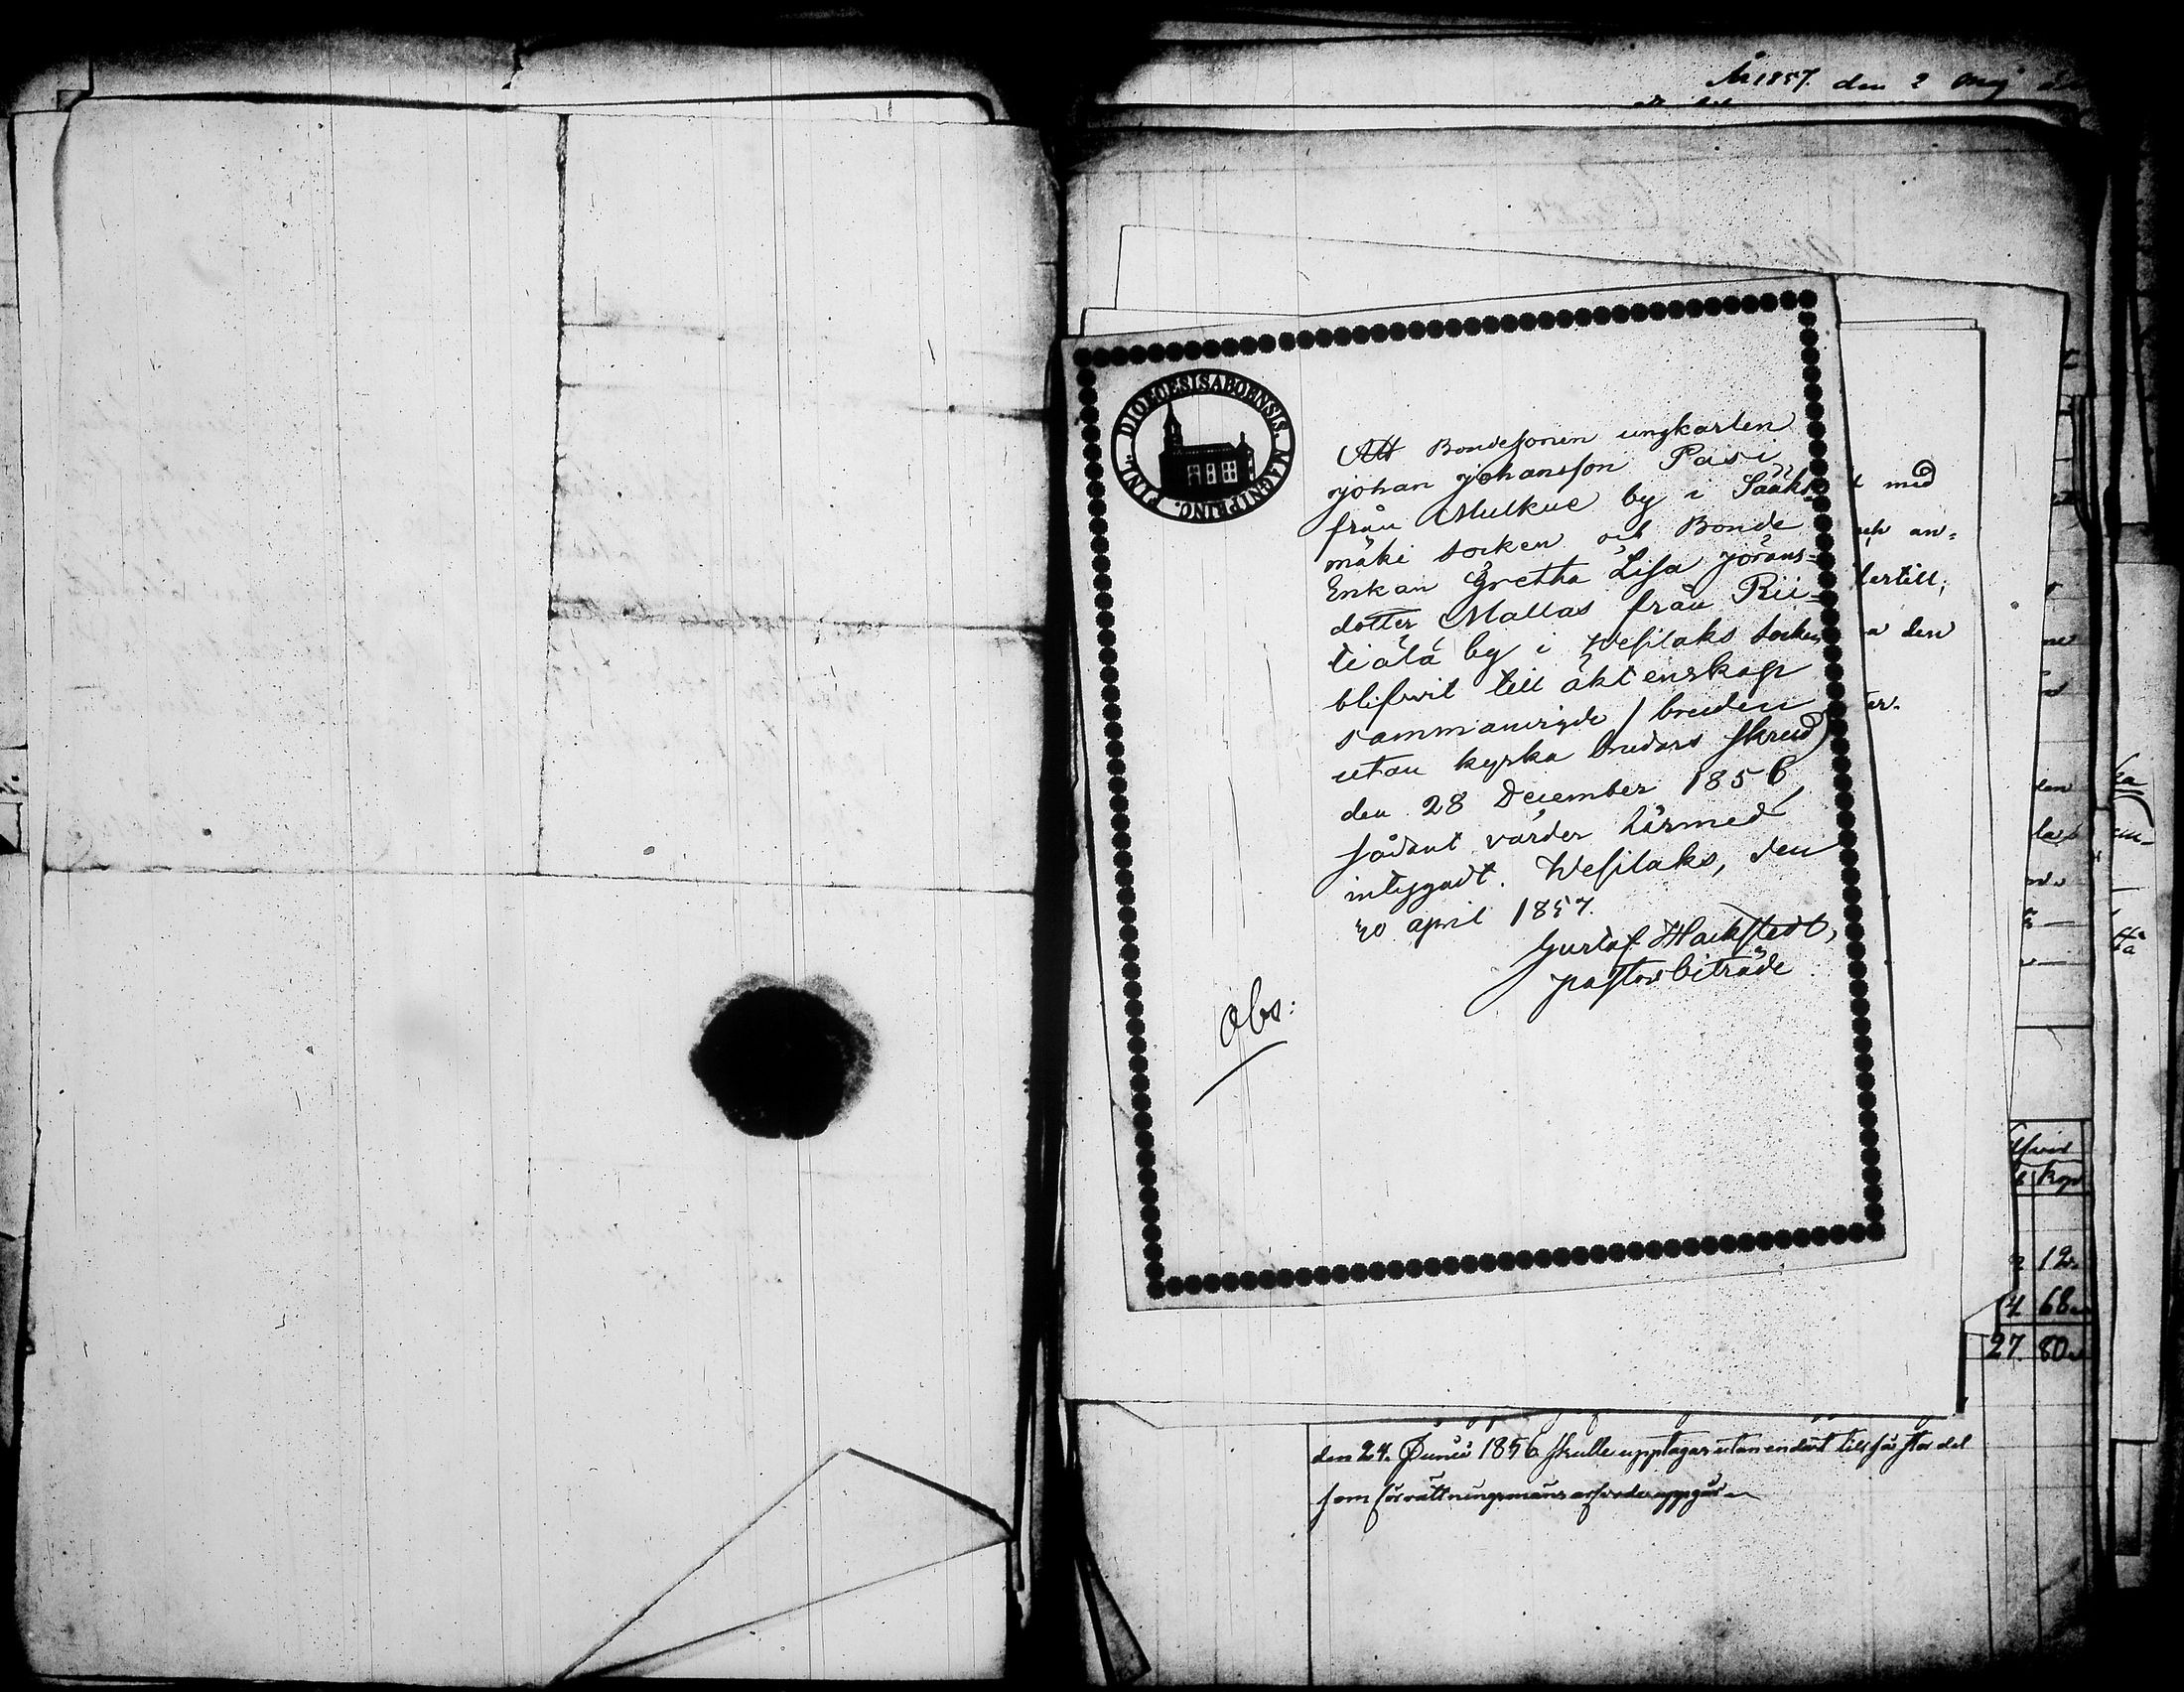 År 1857. den 2 Maj
DIOECESIS ABOENSIS. MAGNI PRINC. FINL.
Att Bondesonen ungkarlen
Johan Johansson Pasi
från Mulkue by i Sääks-
mäki socken och Bonde
Enkan Gretha Lisa Jörans-
dotter Mallas från Rii-
tialá by i Wesilaks socken
blifwit till äktenskap
sammanvigde / bruden
utan kyrko brudars skrud
den 28 December 1856,
sådant varder härmed
intygadt. Wesilaks, den
30 april 1857.
Gustaf Hackstedt,
pastorsbiträde
Obs:
med
an-
dertill,
den
kop
12
4 68
27. 80
den 24. Junii 1856 skulle upptagas utan endast till så stor del
som förrättningsmäns arfvode uppgår